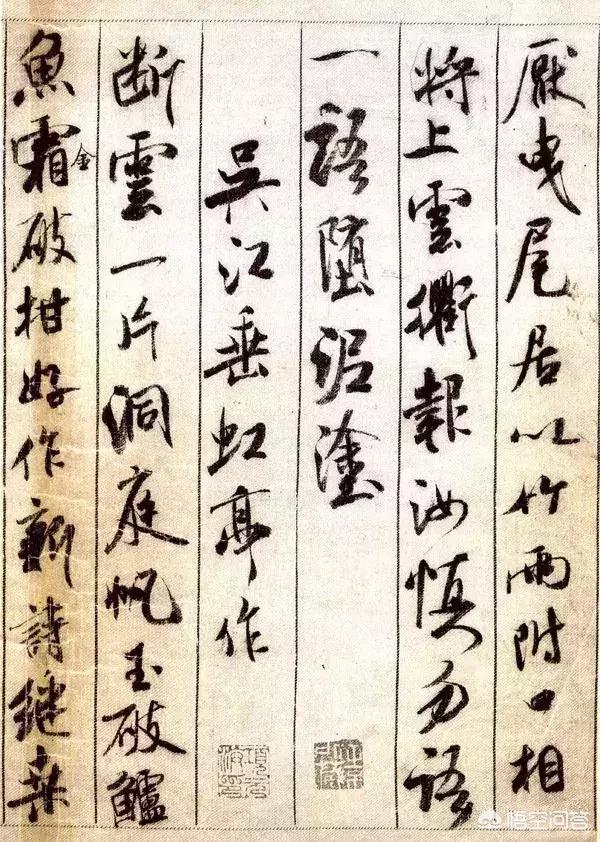 厭曳尾居以竹兩附口相
將上雲衢報汝慎勿語
一語墮泥塗
吳江垂虹亭作
断雲一片洞庭帆玉破鱸
魚金霜破柑好作新詩繼桑
悟空问答